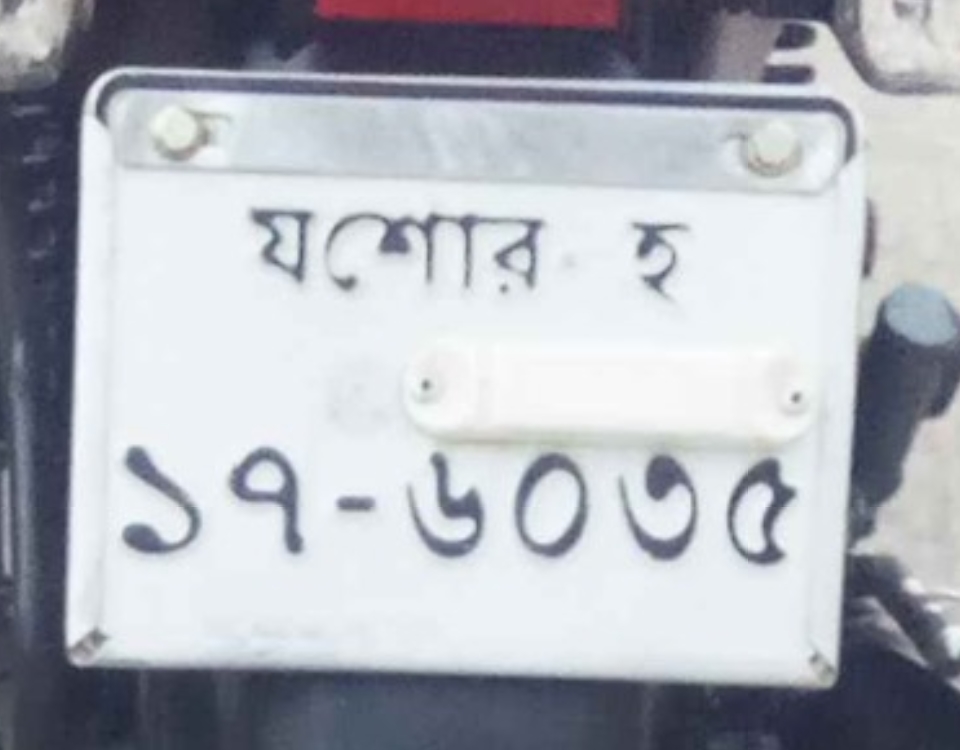 যশোর হ
১৭-৬০৩৫